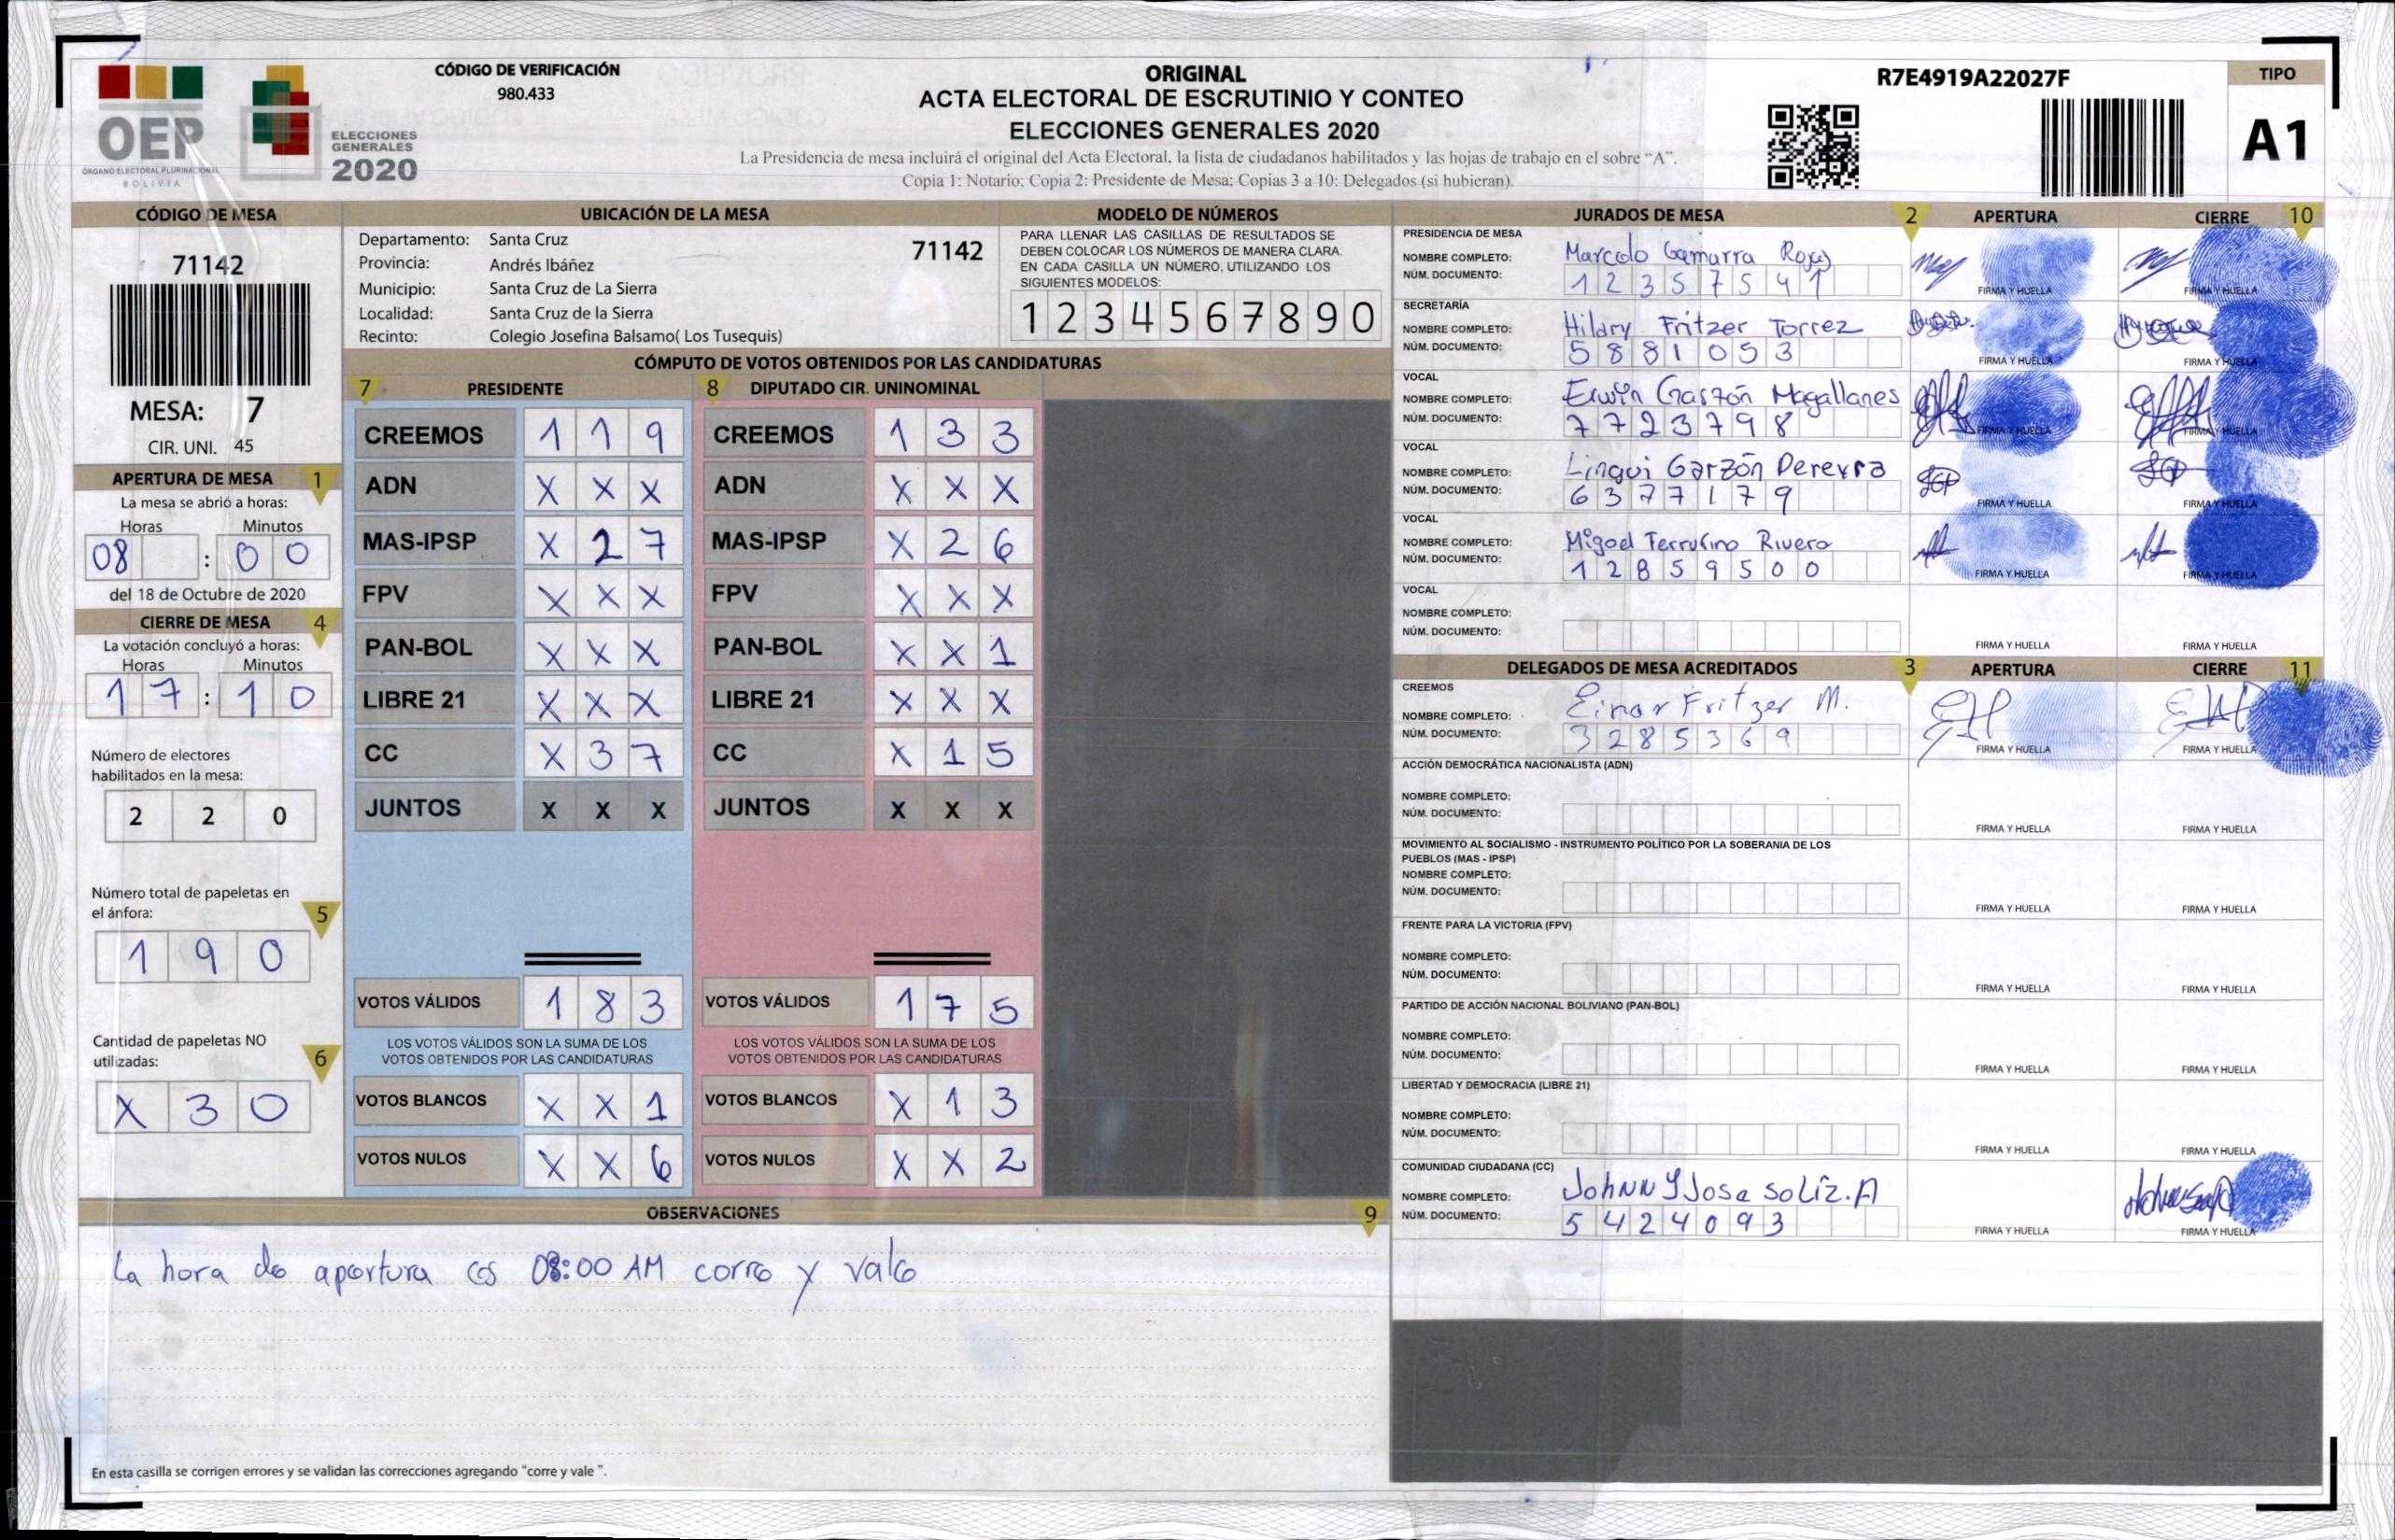 CÓDIGO DE VERIFICACIÓN
980.433
ORIGINAL
ACTA ELECTORAL DE ESCRUTINIO Y CONTEO
ELECCIONES GENERALES 2020
La Presidencia de mesa incluirá el original del Acta Electoral, la lista de ciudadanos habilitados y las hojas de trabajo en el sobre “A”.
Copia 1: Notario; Copia 2: Presidente de Mesa; Copias 3 a 10: Delegados (si hubieran).
OEP
ÓRGANO ELECTORAL PLURINACIONAL
BOLIVIA
ELECCIONES
GENERALES
2020
R7E4919A22027F
TIPO
A1
CÓDIGO DE MESA
71142
MESA: 7
CIR. UNI. 45
APERTURA DE MESA 1
La mesa se abrió a horas:
Horas Minutos
08 : 0 0
del 18 de Octubre de 2020
CIERRE DE MESA 4
La votación concluyó a horas:
Horas Minutos
1 7 : 1 0
Número de electores
habilitados en la mesa:
2 2 0
Número total de papeletas en
el ánfora: 5
1 9 0
Cantidad de papeletas NO
utilizadas: 6
X 3 0
UBICACIÓN DE LA MESA
Departamento: Santa Cruz 71142
Provincia: Andrés Ibáñez
Municipio: Santa Cruz de La Sierra
Localidad: Santa Cruz de la Sierra
Recinto: Colegio Josefina Balsamo( Los Tusequis)
MODELO DE NÚMEROS
PARA LLENAR LAS CASILLAS DE RESULTADOS SE
DEBEN COLOCAR LOS NÚMEROS DE MANERA CLARA.
EN CADA CASILLA UN NÚMERO, UTILIZANDO LOS
SIGUIENTES MODELOS:
1 2 3 4 5 6 7 8 9 0
CÓMPUTO DE VOTOS OBTENIDOS POR LAS CANDIDATURAS
7 PRESIDENTE
CREEMOS 1 1 9
ADN X X X
MAS-IPSP X 2 7
FPV X X X
PAN-BOL X X X
LIBRE 21 X X X
CC X 3 7
JUNTOS X X X
VOTOS VÁLIDOS 1 8 3
LOS VOTOS VÁLIDOS SON LA SUMA DE LOS
VOTOS OBTENIDOS POR LAS CANDIDATURAS
VOTOS BLANCOS X X 1
VOTOS NULOS X X 6
8 DIPUTADO CIR. UNINOMINAL
CREEMOS 1 3 3
ADN X X X
MAS-IPSP X 2 6
FPV X X X
PAN-BOL X X 1
LIBRE 21 X X X
CC X 1 5
JUNTOS X X X
VOTOS VÁLIDOS 1 7 5
LOS VOTOS VÁLIDOS SON LA SUMA DE LOS
VOTOS OBTENIDOS POR LAS CANDIDATURAS
VOTOS BLANCOS X 1 3
VOTOS NULOS X X 2
OBSERVACIONES 9
La hora de apertura es 08:00 AM corre y vale
En esta casilla se corrigen errores y se validan las correcciones agregando “corre y vale ”.
JURADOS DE MESA 2 APERTURA CIERRE 10
PRESIDENCIA DE MESA
NOMBRE COMPLETO: Marcelo Gamarra Rojas
NÚM. DOCUMENTO: 1 2 3 5 7 5 4 1
FIRMA Y HUELLA FIRMA Y HUELLA
SECRETARÍA
NOMBRE COMPLETO: Hilary Fritzer Torrez
NÚM. DOCUMENTO: 5 8 8 1 0 5 3
FIRMA Y HUELLA FIRMA Y HUELLA
VOCAL
NOMBRE COMPLETO: Erwin Garzón Magallanes
NÚM. DOCUMENTO: 7 7 2 3 7 9 8
FIRMA Y HUELLA FIRMA Y HUELLA
VOCAL
NOMBRE COMPLETO: Linqui Garzón Pereyra
NÚM. DOCUMENTO: 6 3 7 7 1 7 9
FIRMA Y HUELLA FIRMA Y HUELLA
VOCAL
NOMBRE COMPLETO: Migael Terrufino Rivero
NÚM. DOCUMENTO: 1 2 8 5 9 5 0 0
FIRMA Y HUELLA FIRMA Y HUELLA
VOCAL
NOMBRE COMPLETO:
NÚM. DOCUMENTO:
FIRMA Y HUELLA FIRMA Y HUELLA
DELEGADOS DE MESA ACREDITADOS 3 APERTURA CIERRE 11
CREEMOS
NOMBRE COMPLETO: Einar Fritzer M.
NÚM. DOCUMENTO: 3 2 8 5 3 6 9
FIRMA Y HUELLA FIRMA Y HUELLA
ACCIÓN DEMOCRÁTICA NACIONALISTA (ADN)
NOMBRE COMPLETO:
NÚM. DOCUMENTO:
FIRMA Y HUELLA FIRMA Y HUELLA
MOVIMIENTO AL SOCIALISMO - INSTRUMENTO POLÍTICO POR LA SOBERANIA DE LOS
PUEBLOS (MAS - IPSP)
NOMBRE COMPLETO:
NÚM. DOCUMENTO:
FIRMA Y HUELLA FIRMA Y HUELLA
FRENTE PARA LA VICTORIA (FPV)
NOMBRE COMPLETO:
NÚM. DOCUMENTO:
FIRMA Y HUELLA FIRMA Y HUELLA
PARTIDO DE ACCIÓN NACIONAL BOLIVIANO (PAN-BOL)
NOMBRE COMPLETO:
NÚM. DOCUMENTO:
FIRMA Y HUELLA FIRMA Y HUELLA
LIBERTAD Y DEMOCRACIA (LIBRE 21)
NOMBRE COMPLETO:
NÚM. DOCUMENTO:
FIRMA Y HUELLA FIRMA Y HUELLA
COMUNIDAD CIUDADANA (CC)
NOMBRE COMPLETO: JohNNY Jose Solíz.A
NÚM. DOCUMENTO: 5 4 2 4 0 9 3
FIRMA Y HUELLA FIRMA Y HUELLA